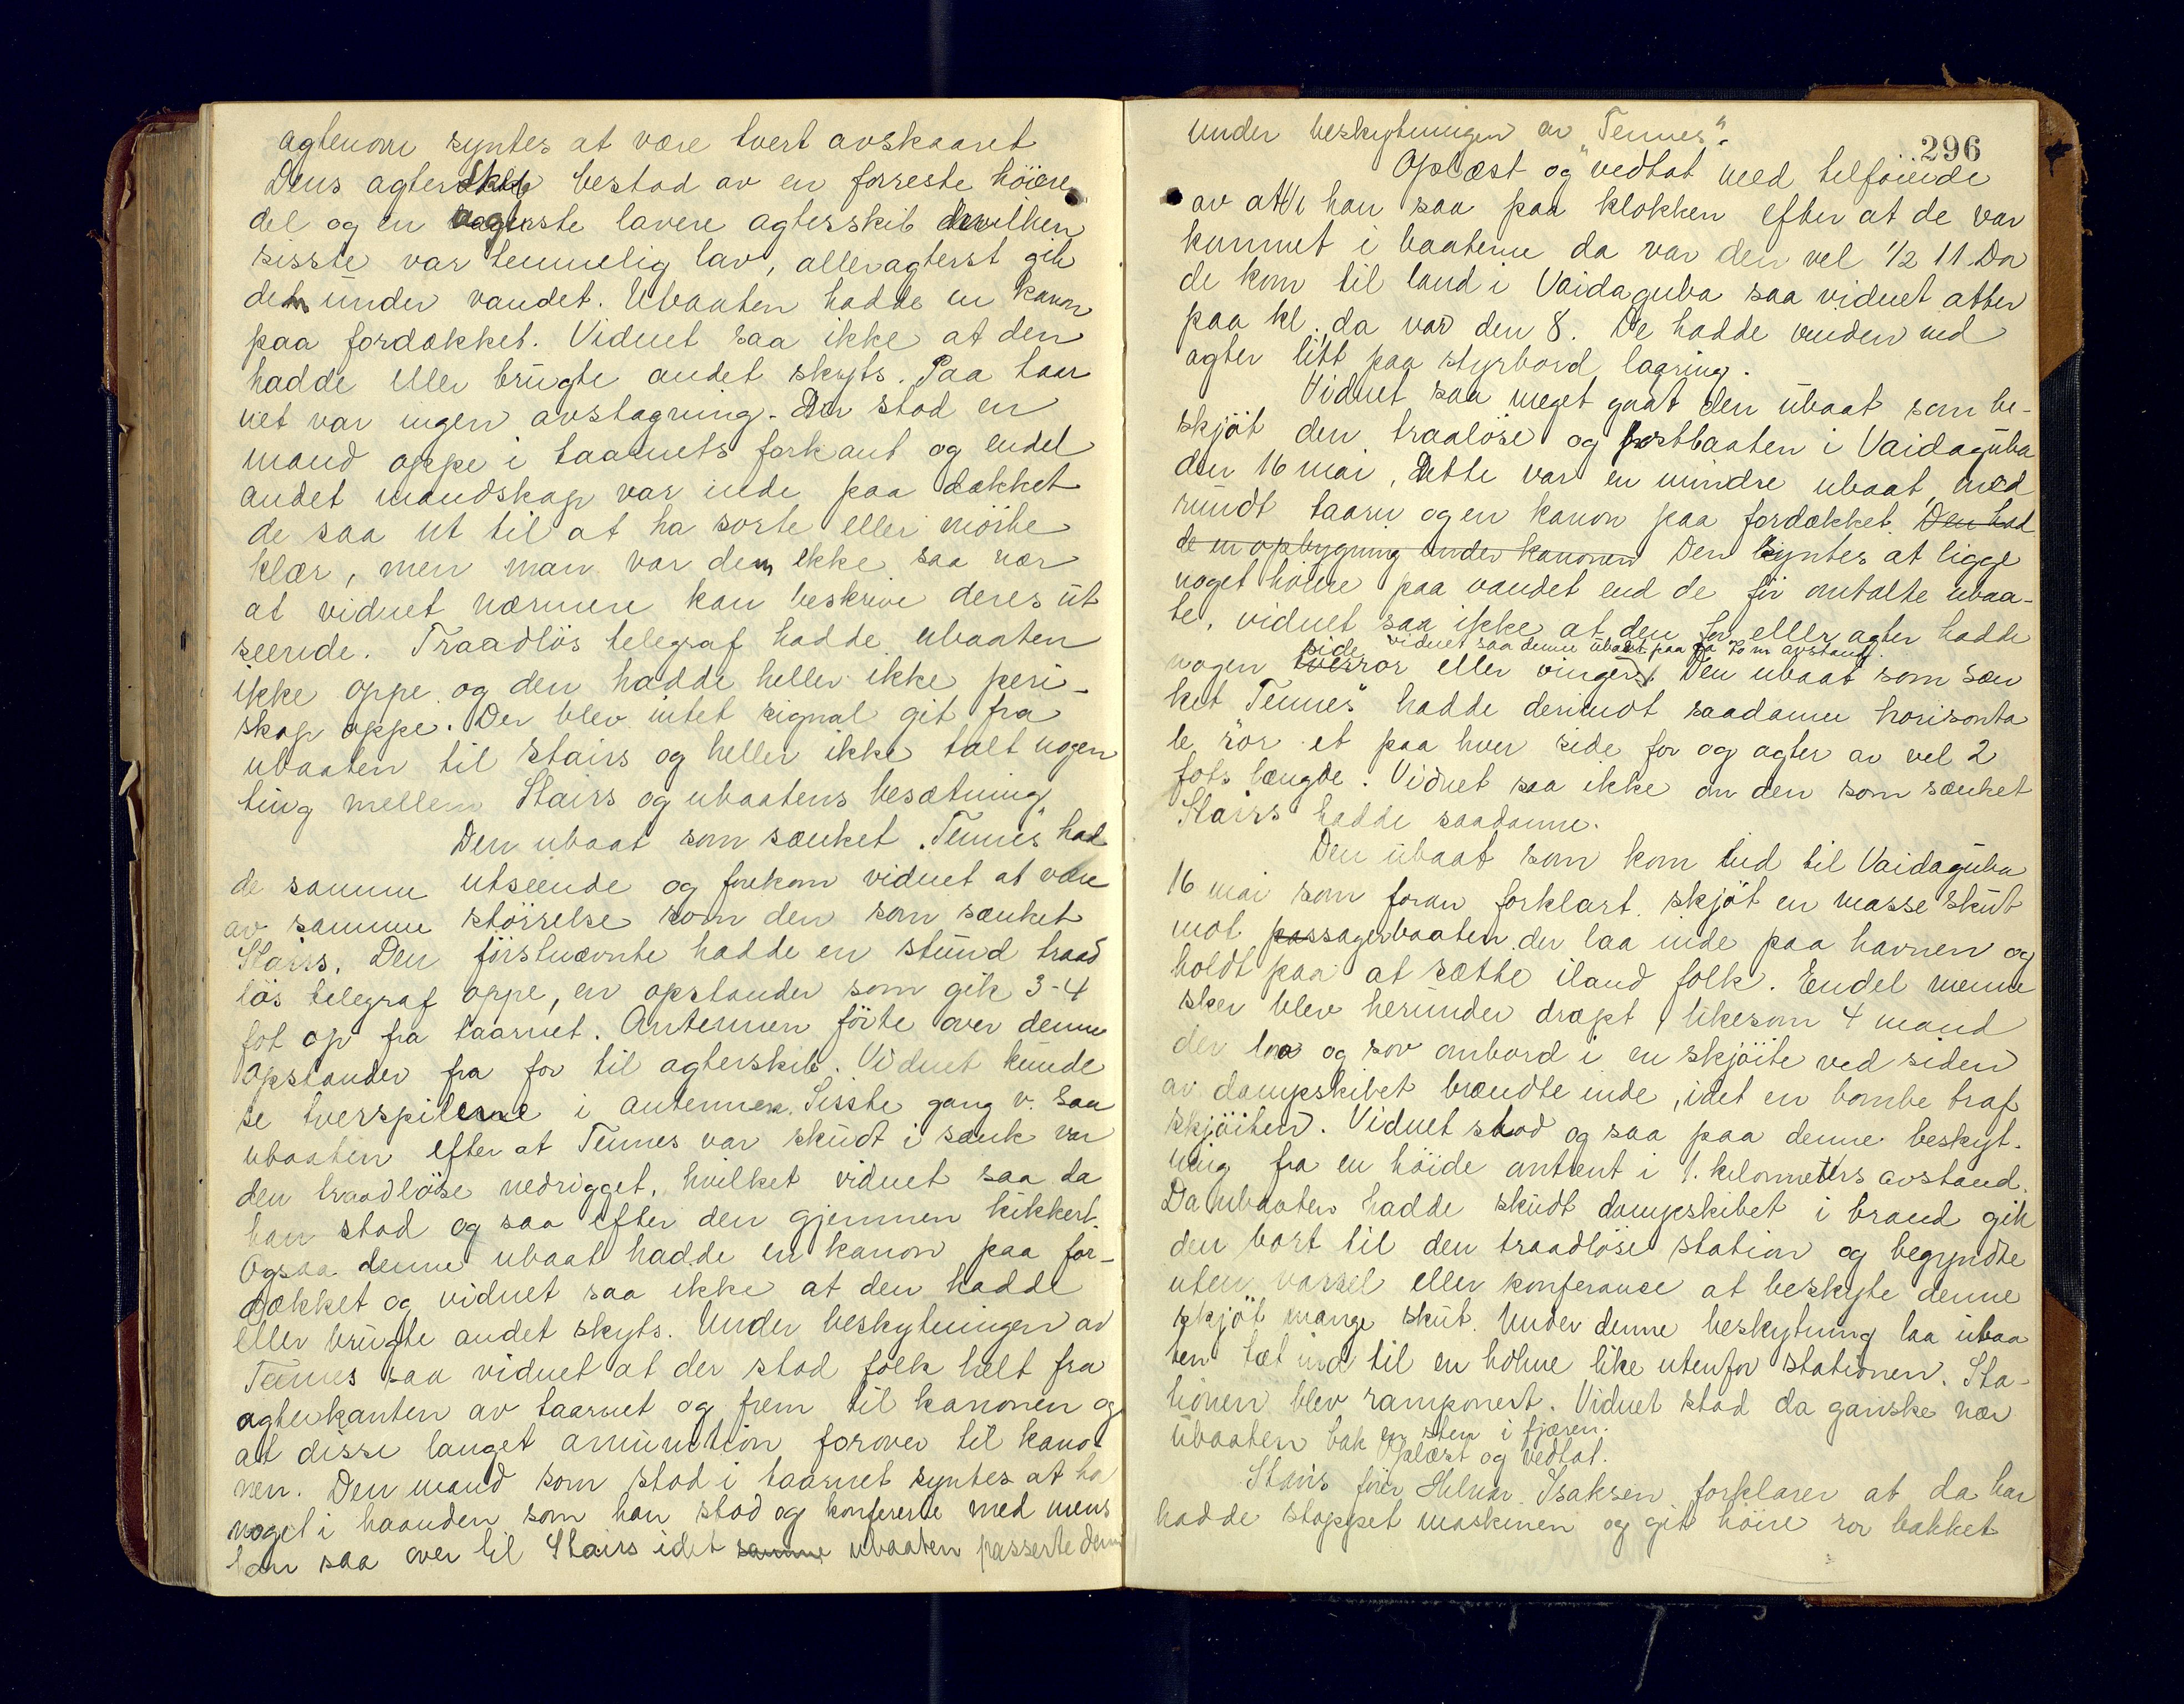 agtenom syntes at være tvert avskaaret
Dens agterskib bestod av en forreste höiere
del og en agterste lavere agterskib hvilken
sisste var temmelig lav, alleragterst gik
den under vandet. Ubaaten hadde en kanon
paa fordækket. Vidnet saa ikke at den
hadde eller brugte andet skyts. Paa taar
net var ingen avstagning. Der stod en
mand oppe i taarnets forkant og endel
andet mandskap var inde paa dækket
de saa ut til at ha sorte eller mörke
klær, men man var dem ikke saa nær
at vidnet nærmere kan beskrive deres ut
seende. Traadlös telegraf hadde ubaaten
ikke oppe og den hadde heller ikke peri-
skop oppe. Der blev intet signal git fra
ubaaten til Stairs og heller ikke talt nogen
ting mellem Stairs og ubaatens besætning.
Den ubaat som sænket "Tennes" had
de samme utseende og forekom vidnet at være
av samme störrelse som den som sænket
Stairs. Den förstnævnte hadde en stund traad
lös telegraf oppe, en opstander som gik 3-4
fot op fra taarnet. Antennen förte over denne
opstander fra for til agterskib. Vidnet kunde
se tverspilerne i antennen. Sisste gang v. saa
ubaaten efter at Tennes var skudt i sænk var
den traadlöse nedrigget, hvilket vidnet saa da
han stod og saa efter den gjennem kikkert.
Ogsaa denne ubaat hadde en kanon paa for-
dækket og vidnet saa ikke at den hadde
eller brugte andet skyts. Under beskytningen av
Tennes saa vidnet at der stod folk helt fra
agterkanten av taarnet og frem til kanonen og
at disse langet amunition forover til kano-
nen. Den mand som stod i taarnet syntes at ha
noget i haanden som han stod og konfererte med mens
han saa over til Stairs idet samme ubaaten passerte denne
296
under beskytningen av "Tennes".
Oplæst og vedtat med tilföiende
av at han saa paa klokken efter at de var
kommet i baatene da var den vel 1/2 11. Da
de kom til land i Vaidaguba saa vidnet atter
paa kl. da var den 8. De hadde vinden ind
agter litt paa styrbord laaring.
Vidnet saa meget godt den ubaat som be-
skjöt den traalöse og postbaaten i Vaidaguba
den 16 mai. Dette var en mindre ubaat med
rundt taarn og en kanon paa fordækket. Den had
de en opbygning under kanonen Den syntes at ligge
noget höiere paa vandet end de för omtalte ubaa-
te, vidnet saa ikke at den for eller agter hadde
side vidnet saa denne ubaat paa ca 70 m avstand.
nogen tverror eller vinger. Den ubaat som sæn
ket "Tennes" hadde derimot saadanne horisonta
le rör et paa hver side for og agter av vel 2
fots længde. Vidnet saa ikke om den som sænket
Stairs hadde saadanne.
Den ubaat som kom ind til Vaidaguba
16 mai som foran forklart skjöt en masse skut
mot passagerbaaten der laa inde paa havnen og
holdt paa at sætte iland folk. Endel menne
sker blev herunder dræpt likesom 4 mand
der laa og sov ombord i en skjöite ved siden
av dampskibet brændte inde, idet en bombe traf
skjöiten. Vidnet stod og saa paa denne beskyt-
ning fra en höide omtrent i 1. kilometers avstand.
Da ubaaten hadde skudt dampskibet i brand gik
den bort til den traadlöse station og begyndte
uten varsel eller konferanse at beskyte denne
skjöt mange skut. Under denne beskytning laa ubaa
ten tæt ind til en holme like utenfor stationen. Sta-
tionen blev ramponert. Vidnet stod da ganske nær
ubaaten bak en sten i fjæren.
Oplæst og vedtat.
Stairs förer Hilmar Isaksen forklarer at da han
hadde stoppet maskinen og git höire ror bakket